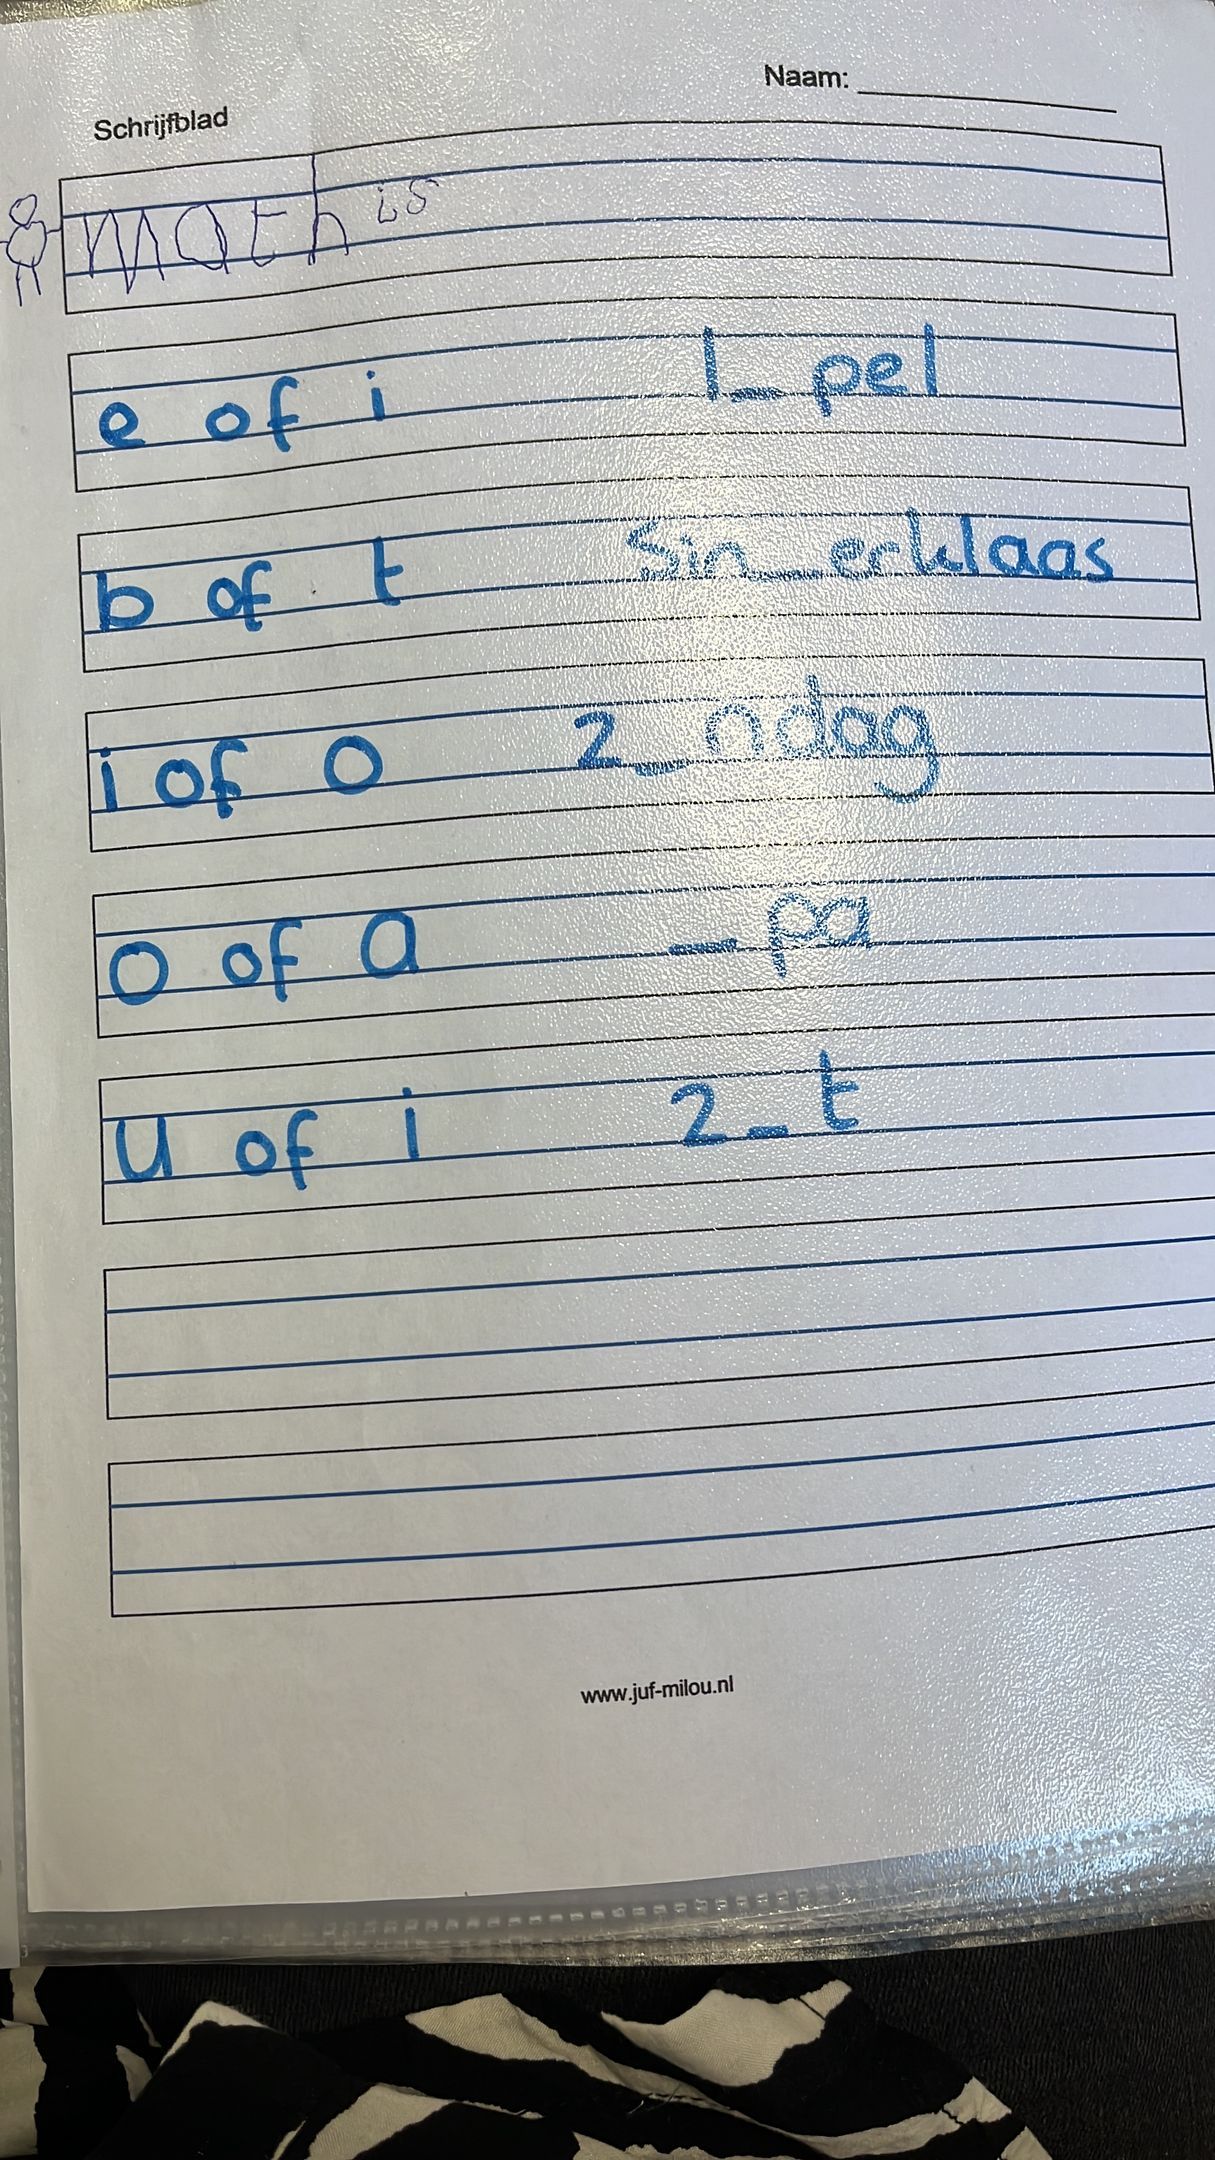 Naam:
Schrijfblad
mathis
e of i l_pel
b of t Sin_erklaas
i of o z_ndag
o of a _pa
u of i z_t
www.juf-milou.nl